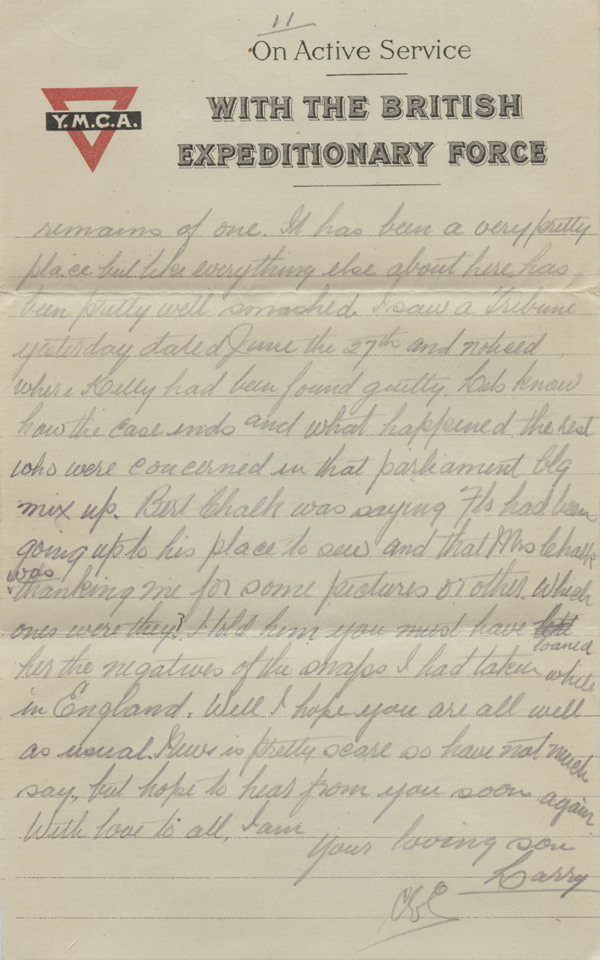 11
On Active Service
Y.M.C.A.
WITH THE BRITISH
EXPEDITIONARY FORCE
remains of one. It has been a very pretty
place but like everything else about here, has
been pretty well smashed. I saw a Tribune
yesterday dated June the 27th and noticed
where Kelly had been found guilty. Lets know
how the case ends and what happened the rest
who were concerned in that parliament blg
mix up. Bert Chalk was saying Fls had been
going up to his place to sew and that Mrs Chalk
was
thanking me for some pictures or other. Which
ones were they? I told him you must have
loaned
her the negatives of the snaps I had taken while
in England. Well I hope you are all well
as usual. News is pretty scare so have not much
say, but hope to hear from you soon again
With love to all, I am
Your loving son
Larry